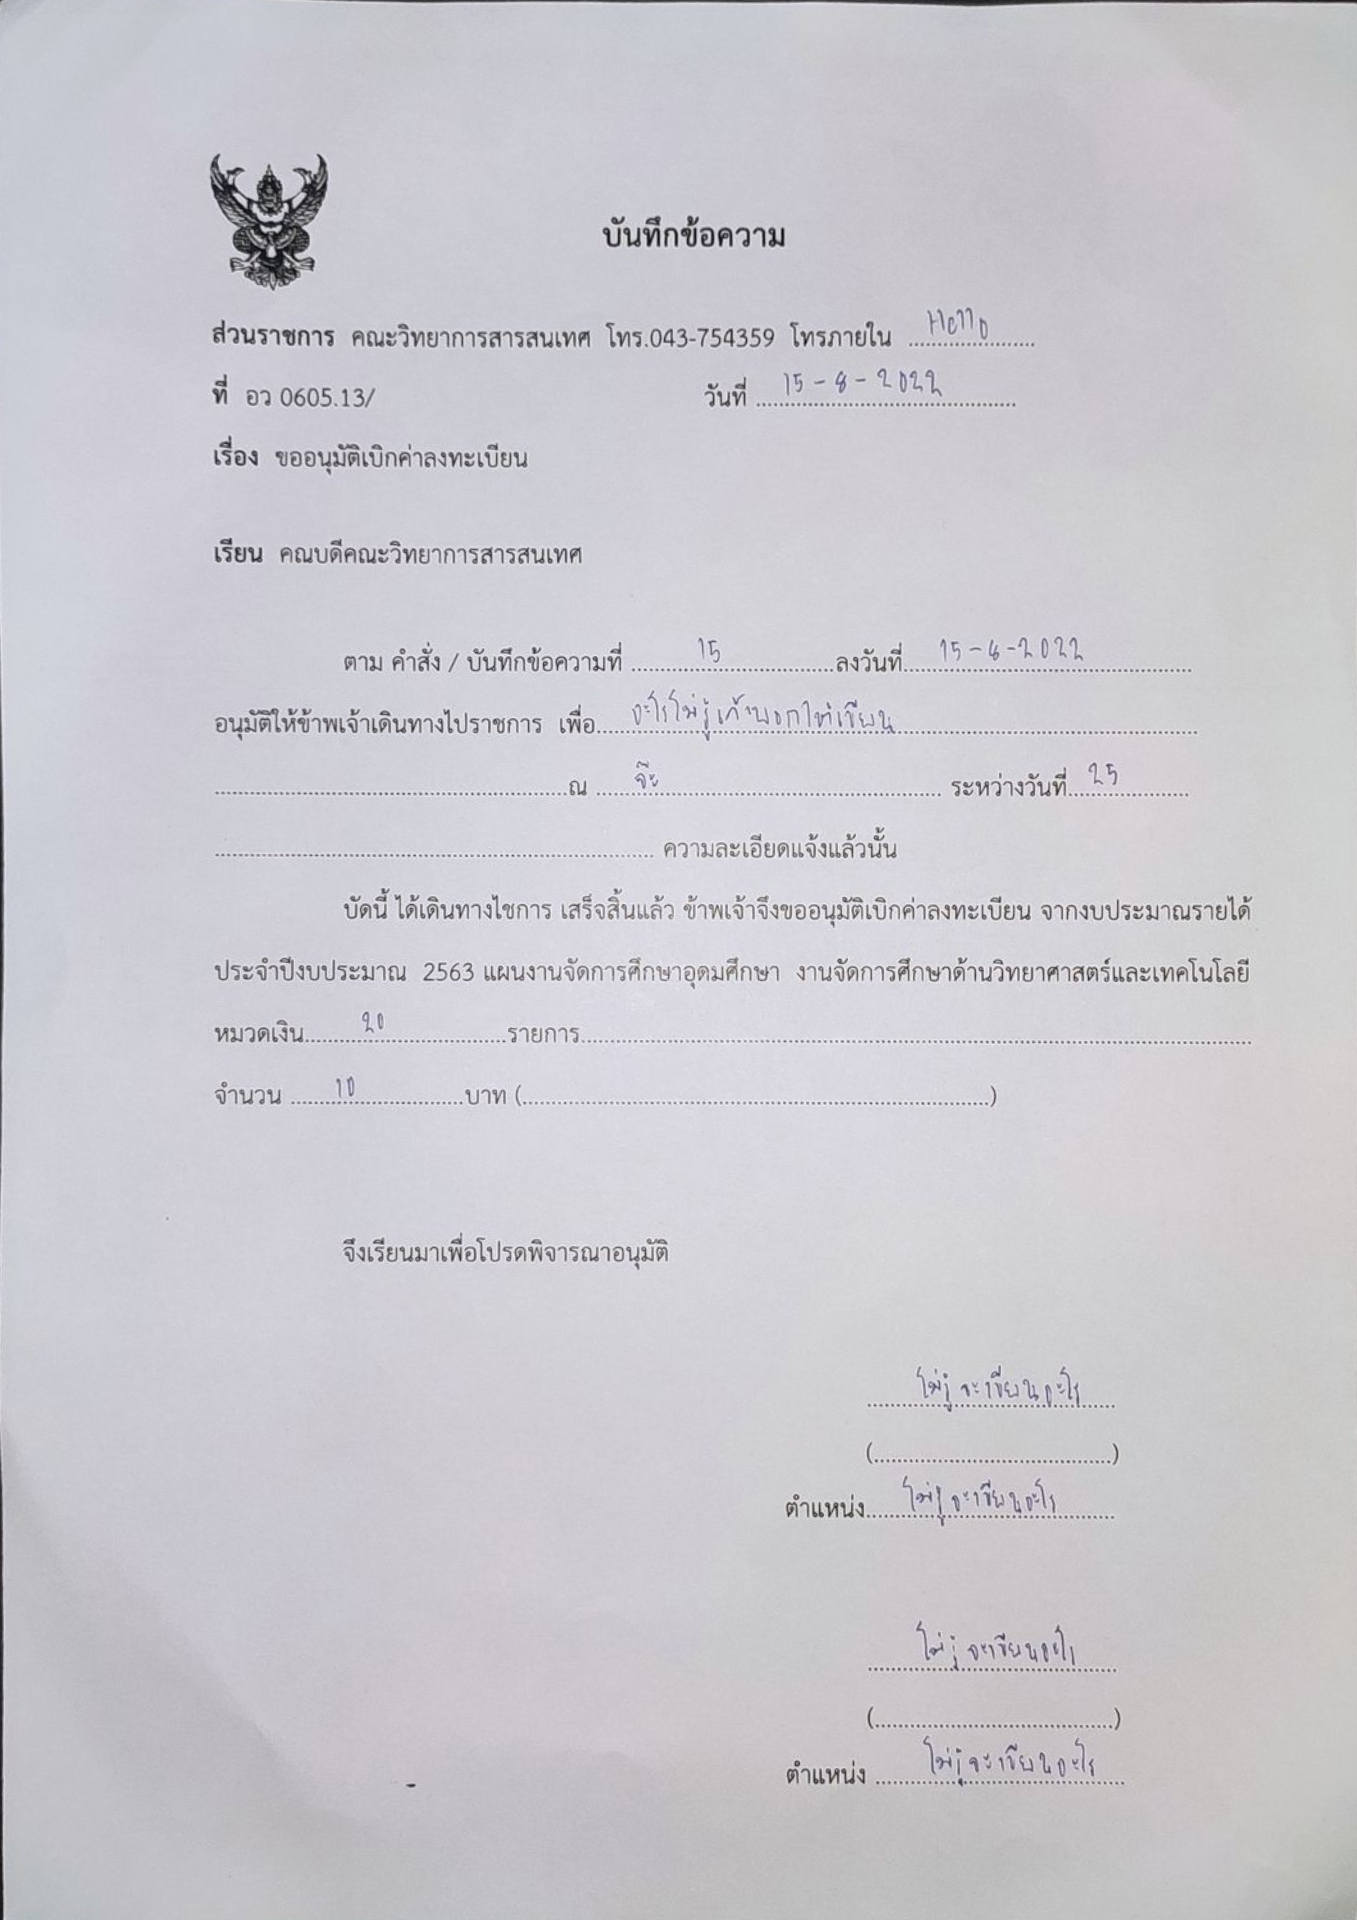 บันทึกข้อความ
ส่วนราชการ คณะวิทยาการสารสนเทศ โทร.043-754359 โทรภายใน Hello
ที่ อว 0605.13/ วันที่ 15-8-2022
เรื่อง ขออนุมัติเบิกค่าลงทะเบียน
เรียน คณบดีคณะวิทยาการสารสนเทศ
ตาม คำสั่ง / บันทึกข้อความที่ 15 ลงวันที่ 15-8-2022
อนุมัติให้ข้าพเจ้าเดินทางไปราชการ เพื่อ อะไรไม่รู้เค้าบอกให้เขียน
ณ จ๊ะ ระหว่างวันที่ 25
ความละเอียดแจ้งแล้วนั้น
บัดนี้ ได้เดินทางไชการ เสร็จสิ้นแล้ว ข้าพเจ้าจึงขออนุมัติเบิกค่าลงทะเบียน จากงบประมาณรายได้
ประจำปีงบประมาณ 2563 แผนงานจัดการศึกษาอุดมศึกษา งานจัดการศึกษาด้านวิทยาศาสตร์และเทคโนโลยี
หมวดเงิน 20 รายการ
จำนวน 10 บาท ( )
จึงเรียนมาเพื่อโปรดพิจารณาอนุมัติ
ไม่รู้จะเขียนอะไร
( )
ตำแหน่ง ไม่รู้จะเขียนอะไร
ไม่รู้จะเขียนอะไร
( )
ตำแหน่ง ไม่รู้จะเขียนอะไร